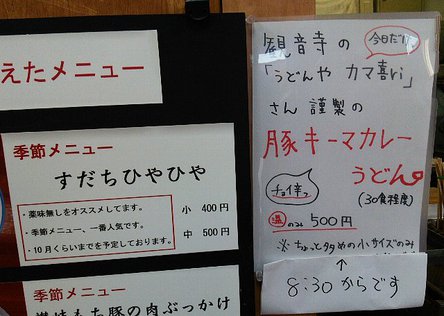 えたメニュー
季節メニュー
すだちひやひや
・薬味無しをオススメしてます。
・季節メニュー、一番人気です。
・10月くらいまでを予定しております。
小 400円
中 500円
季節メニュー
讃岐もち豚の肉ぶっかけ
観音寺の
今日だけ
「うどんや カマ喜ri」
さん 謹製の
豚キーマカレー
うどん
チョイ辛っ
(30食程度)
温のみ 500円
※ちょっと多めの小サイズのみ
↑
8:30からです